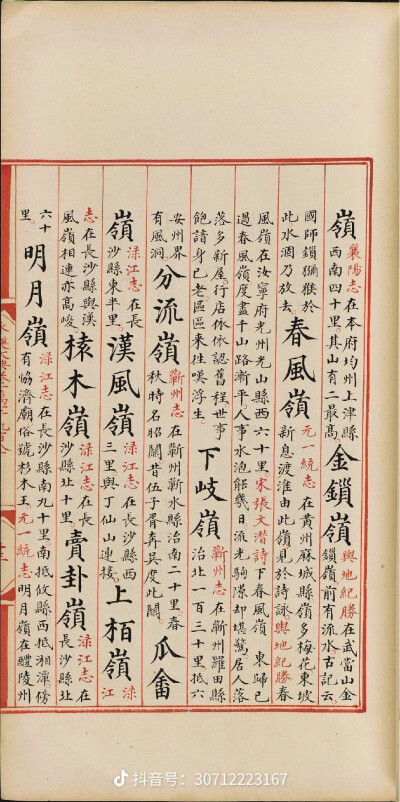 嶺
襄陽志在本府均州上津縣
西南四十里其山有二最高
金鎖嶺
輿地紀勝在武當山金
鎖嶺嶺前有流水古記云
國師鎖獼猴於
此水涸乃放去
春風嶺
元一統志在黃州麻城縣嶺多梅花東坡
新息渡淮由此嶺見於詩詠輿地紀勝春
風嶺在汝寧府光州光山縣西六十里宋張文潛詩下春風嶺東歸已
過春風嶺度盡千山路漸平人事水泡能幾日流光駒隙却堪驚居人落
落多新屋行店依依認舊程世事
飽諳身已老區區來往嘆浮生
下岐嶺
蘄州志在蘄州羅田縣
治北一百三十里抵六
安州界
有風洞
分流嶺
蘄州志在蘄州蘄水縣治南二十里春
秋時名昭關昔伍子胥奔吳度此關
瓜畬
嶺
淥江志在長
沙縣東半里
漢風嶺
淥江志在長沙縣西
三里與丁仙山連接
上栢嶺
淥
江
志在長沙縣與漢
風嶺相連亦高峻
猿木嶺
淥江志在長
沙縣北十里
賣卦嶺
淥江志在
長沙縣北
六十
里
明月嶺
淥江志在長沙縣南九十里南抵攸縣西抵湘潭傍
有協濟廟俗號杉木王元一統志明月嶺在醴陵州
抖音号：30712223167